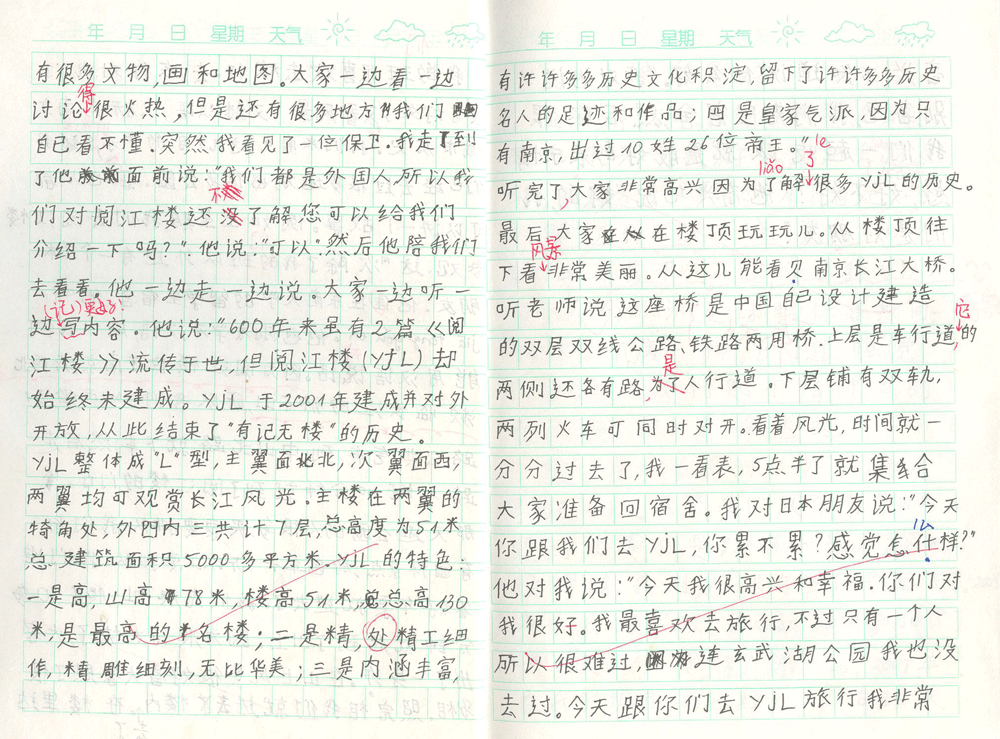 年 月 日 星期 天气
有很多文物,画和地图。大家一边看一边
得
讨论很火热,但是还有很多地方我们
自己看不懂.突然我看见了一位保卫.我走了到
了他面前说:"我们都是外国人所以我
不
们对阅江楼还没了解您可以给我们
介绍一下吗?".他说:"可以".然后他陪我们
去看看。他一边走一边说。大家一边听一
(记)更好!
边写内容。他说:"600年来虽有2篇《阅
江楼》流传于世,但阅江楼(YJL)却
始终未建成。YJL于2001年建成并对外
开放,从此结束了"有记无楼"的历史。
YJL整体成"L"型,主翼面北,次翼面西,
两翼均可观赏长江风光.主楼在两翼的
犄角处,外四内三共计7层,总高度为51米
总建筑面积5000多平方米.YJL的特色:
一是高,山高78米,楼高51米,总高130
米,是最高的名楼;二是精,处精工细
作,精雕细刻,无比华美;三是内涵丰富,
年 月 日 星期 天气
有许许多多历史文化积淀,留下了许许多多历史
名人的足迹和作品;四是皇家气派,因为只
有南京,出过10姓26位帝王。"
le
liǎo 了
听完了,大家非常高兴因为了解很多YJL的历史。
最后,大家在楼顶玩玩儿.从楼顶往
风景
下看非常美丽。从这儿能看见南京长江大桥。
听老师说这座桥是中国自己设计建造
它
的双层双线公路、铁路两用桥.上层是车行道,的
是
两侧还各有路,为了人行道。下层铺有双轨,
两列火车可同时对开。看着风光,时间就一
分分过去了,我一看表,5点半了就集合
大家准备回宿舍。我对日本朋友说:"今天
么
你跟我们去YJL,你累不累?感觉怎什样?"
他对我说:"今天我很高兴和幸福.你们对
我很好。我最喜欢去旅行,不过只有一个人
所以很难过,连玄武湖公园我也没
去过。今天跟你们去YJL旅行我非常